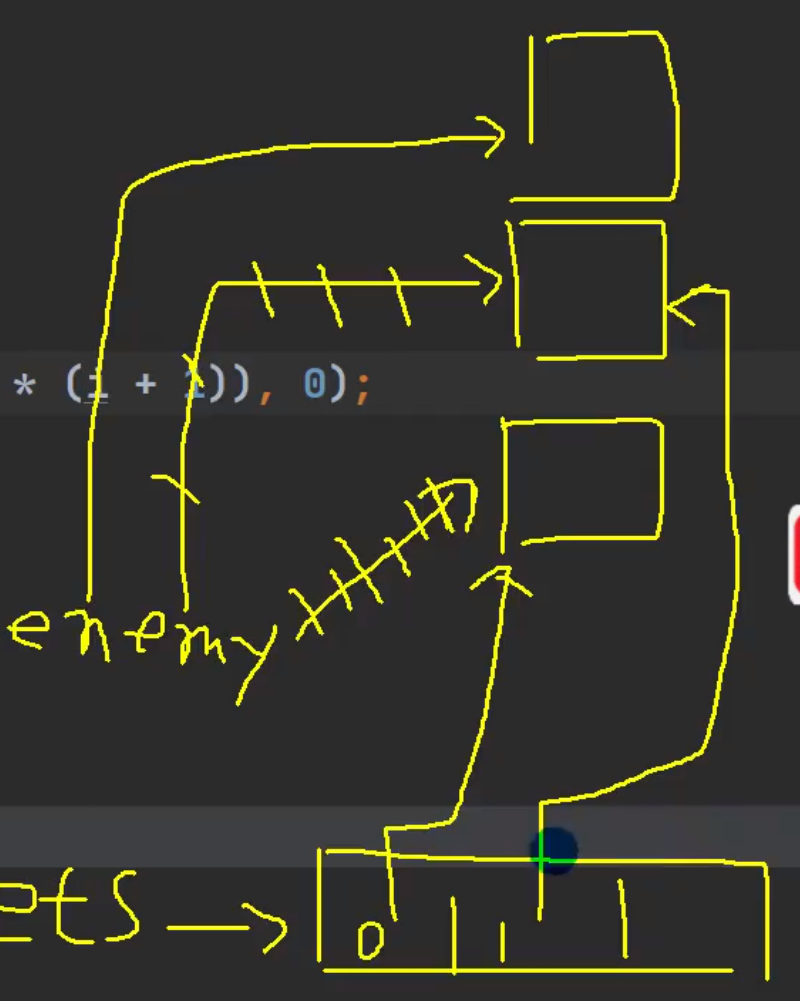 * (i + 1)), 0);
enemy
ets
0 1